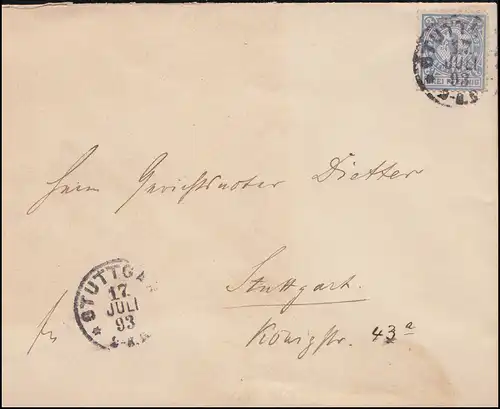 STUTTG
17.
JULI
93
Herrn Gerichtsnotar Dietter
Stuttgart.
Königstr. 43a
STUTTGA
17.
JULI
93